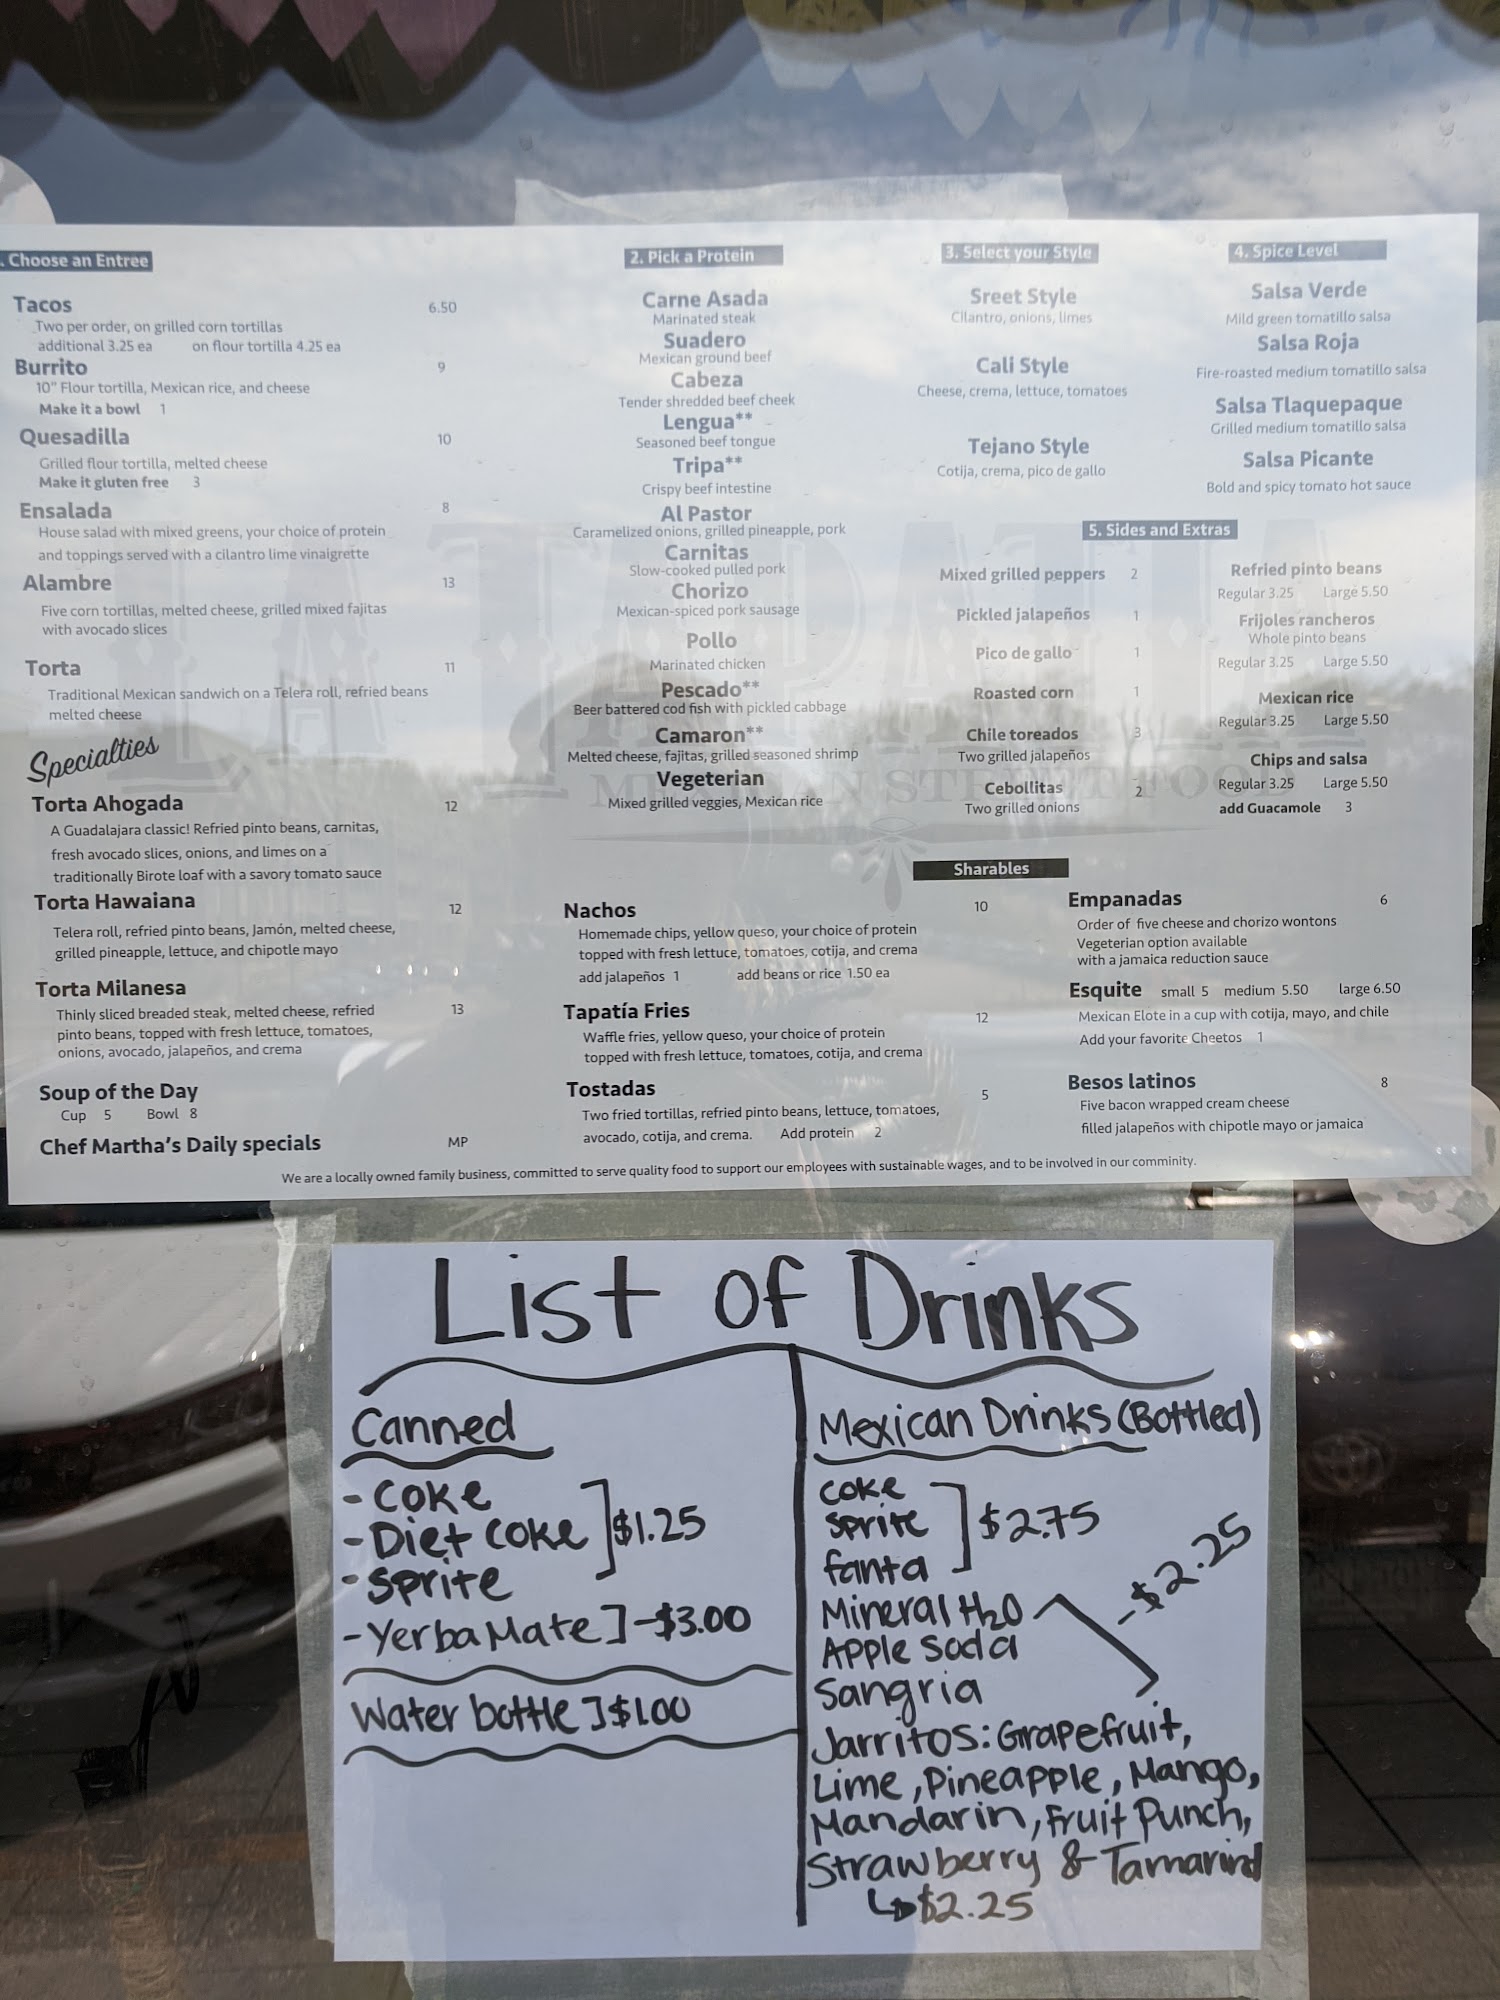 . Choose an Entree
Tacos 6.50
Two per order, on grilled corn tortillas
additional 3.25 ea on flour tortilla 4.25 ea
Burrito 9
10" Flour tortilla, Mexican rice, and cheese
Make it a bowl 1
Quesadilla 10
Grilled flour tortilla, melted cheese
Make it gluten free 3
Ensalada 8
House salad with mixed greens, your choice of protein
and toppings served with a cilantro lime vinaigrette
Alambre 13
Five corn tortillas, melted cheese, grilled mixed fajitas
with avocado slices
Torta 11
Traditional Mexican sandwich on a Telera roll, refried beans
melted cheese
Specialties
Torta Ahogada 12
A Guadalajara classic! Refried pinto beans, carnitas,
fresh avocado slices, onions, and limes on a
traditionally Birote loaf with a savory tomato sauce
Torta Hawaiana 12
Telera roll, refried pinto beans, Jamón, melted cheese,
grilled pineapple, lettuce, and chipotle mayo
Torta Milanesa 13
Thinly sliced breaded steak, melted cheese, refried
pinto beans, topped with fresh lettuce, tomatoes,
onions, avocado, jalapeños, and crema
Soup of the Day
Cup 5 Bowl 8
Chef Martha's Daily specials MP
2. Pick a Protein
Carne Asada
Marinated steak
Suadero
Mexican ground beef
Cabeza
Tender shredded beef cheek
Lengua**
Seasoned beef tongue
Tripa**
Crispy beef intestine
Al Pastor
Caramelized onions, grilled pineapple, pork
Carnitas
Slow-cooked pulled pork
Chorizo
Mexican-spiced pork sausage
Pollo
Marinated chicken
Pescado**
Beer battered cod fish with pickled cabbage
Camaron**
Melted cheese, fajitas, grilled seasoned shrimp
Vegeterian
Mixed grilled veggies, Mexican rice
3. Select your Style
Sreet Style
Cilantro, onions, limes
Cali Style
Cheese, crema, lettuce, tomatoes
Tejano Style
Cotija, crema, pico de gallo
4. Spice Level
Salsa Verde
Mild green tomatillo salsa
Salsa Roja
Fire-roasted medium tomatillo salsa
Salsa Tlaquepaque
Grilled medium tomatillo salsa
Salsa Picante
Bold and spicy tomato hot sauce
5. Sides and Extras
Mixed grilled peppers 2
Pickled jalapeños 1
Pico de gallo 1
Roasted corn 1
Chile toreados 3
Two grilled jalapeños
Cebollitas 2
Two grilled onions
Refried pinto beans
Regular 3.25 Large 5.50
Frijoles rancheros
Whole pinto beans
Regular 3.25 Large 5.50
Mexican rice
Regular 3.25 Large 5.50
Chips and salsa
Regular 3.25 Large 5.50
add Guacamole 3
LA TAPATIA
MEXICAN STREET FOOD
Sharables
Nachos 10
Homemade chips, yellow queso, your choice of protein
topped with fresh lettuce, tomatoes, cotija, and crema
add jalapeños 1 add beans or rice 1.50 ea
Tapatía Fries 12
Waffle fries, yellow queso, your choice of protein
topped with fresh lettuce, tomatoes, cotija, and crema
Tostadas 5
Two fried tortillas, refried pinto beans, lettuce, tomatoes,
avocado, cotija, and crema. Add protein 2
Empanadas 6
Order of five cheese and chorizo wontons
Vegeterian option available
with a jamaica reduction sauce
Esquite small 5 medium 5.50 large 6.50
Mexican Elote in a cup with cotija, mayo, and chile
Add your favorite Cheetos 1
Besos latinos 8
Five bacon wrapped cream cheese
filled jalapeños with chipotle mayo or jamaica
We are a locally owned family business, committed to serve quality food to support our employees with sustainable wages, and to be involved in our comminity.
List of Drinks
Canned
- Coke
- Diet Coke ] $1.25
- Sprite
- Yerba Mate ] - $3.00
Water bottle ] $1.00
Mexican Drinks (Bottled)
Coke
Sprite ] $2.75
fanta
Mineral H2O - $2.25
Apple Soda
Sangria
Jarritos: Grapefruit,
Lime, Pineapple, Mango,
Mandarin, Fruit Punch,
Strawberry & Tamarind
↳ $2.25